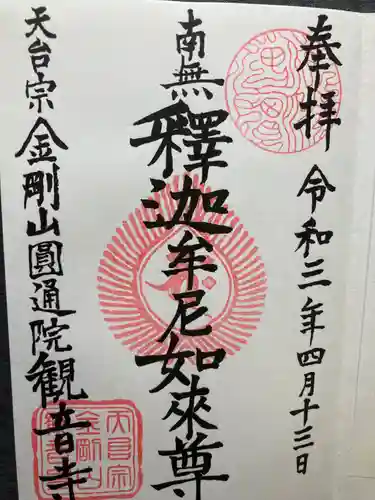 奉拝
令和三年四月十三日
南無
釋迦牟尼如來尊
天台宗
金剛山圓通院観音寺